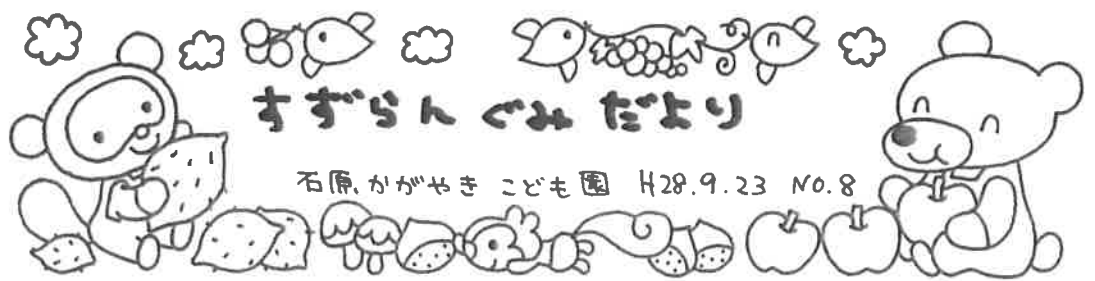 すずらんぐみだより
石原かがやきこども園 H28.9.23 NO.8